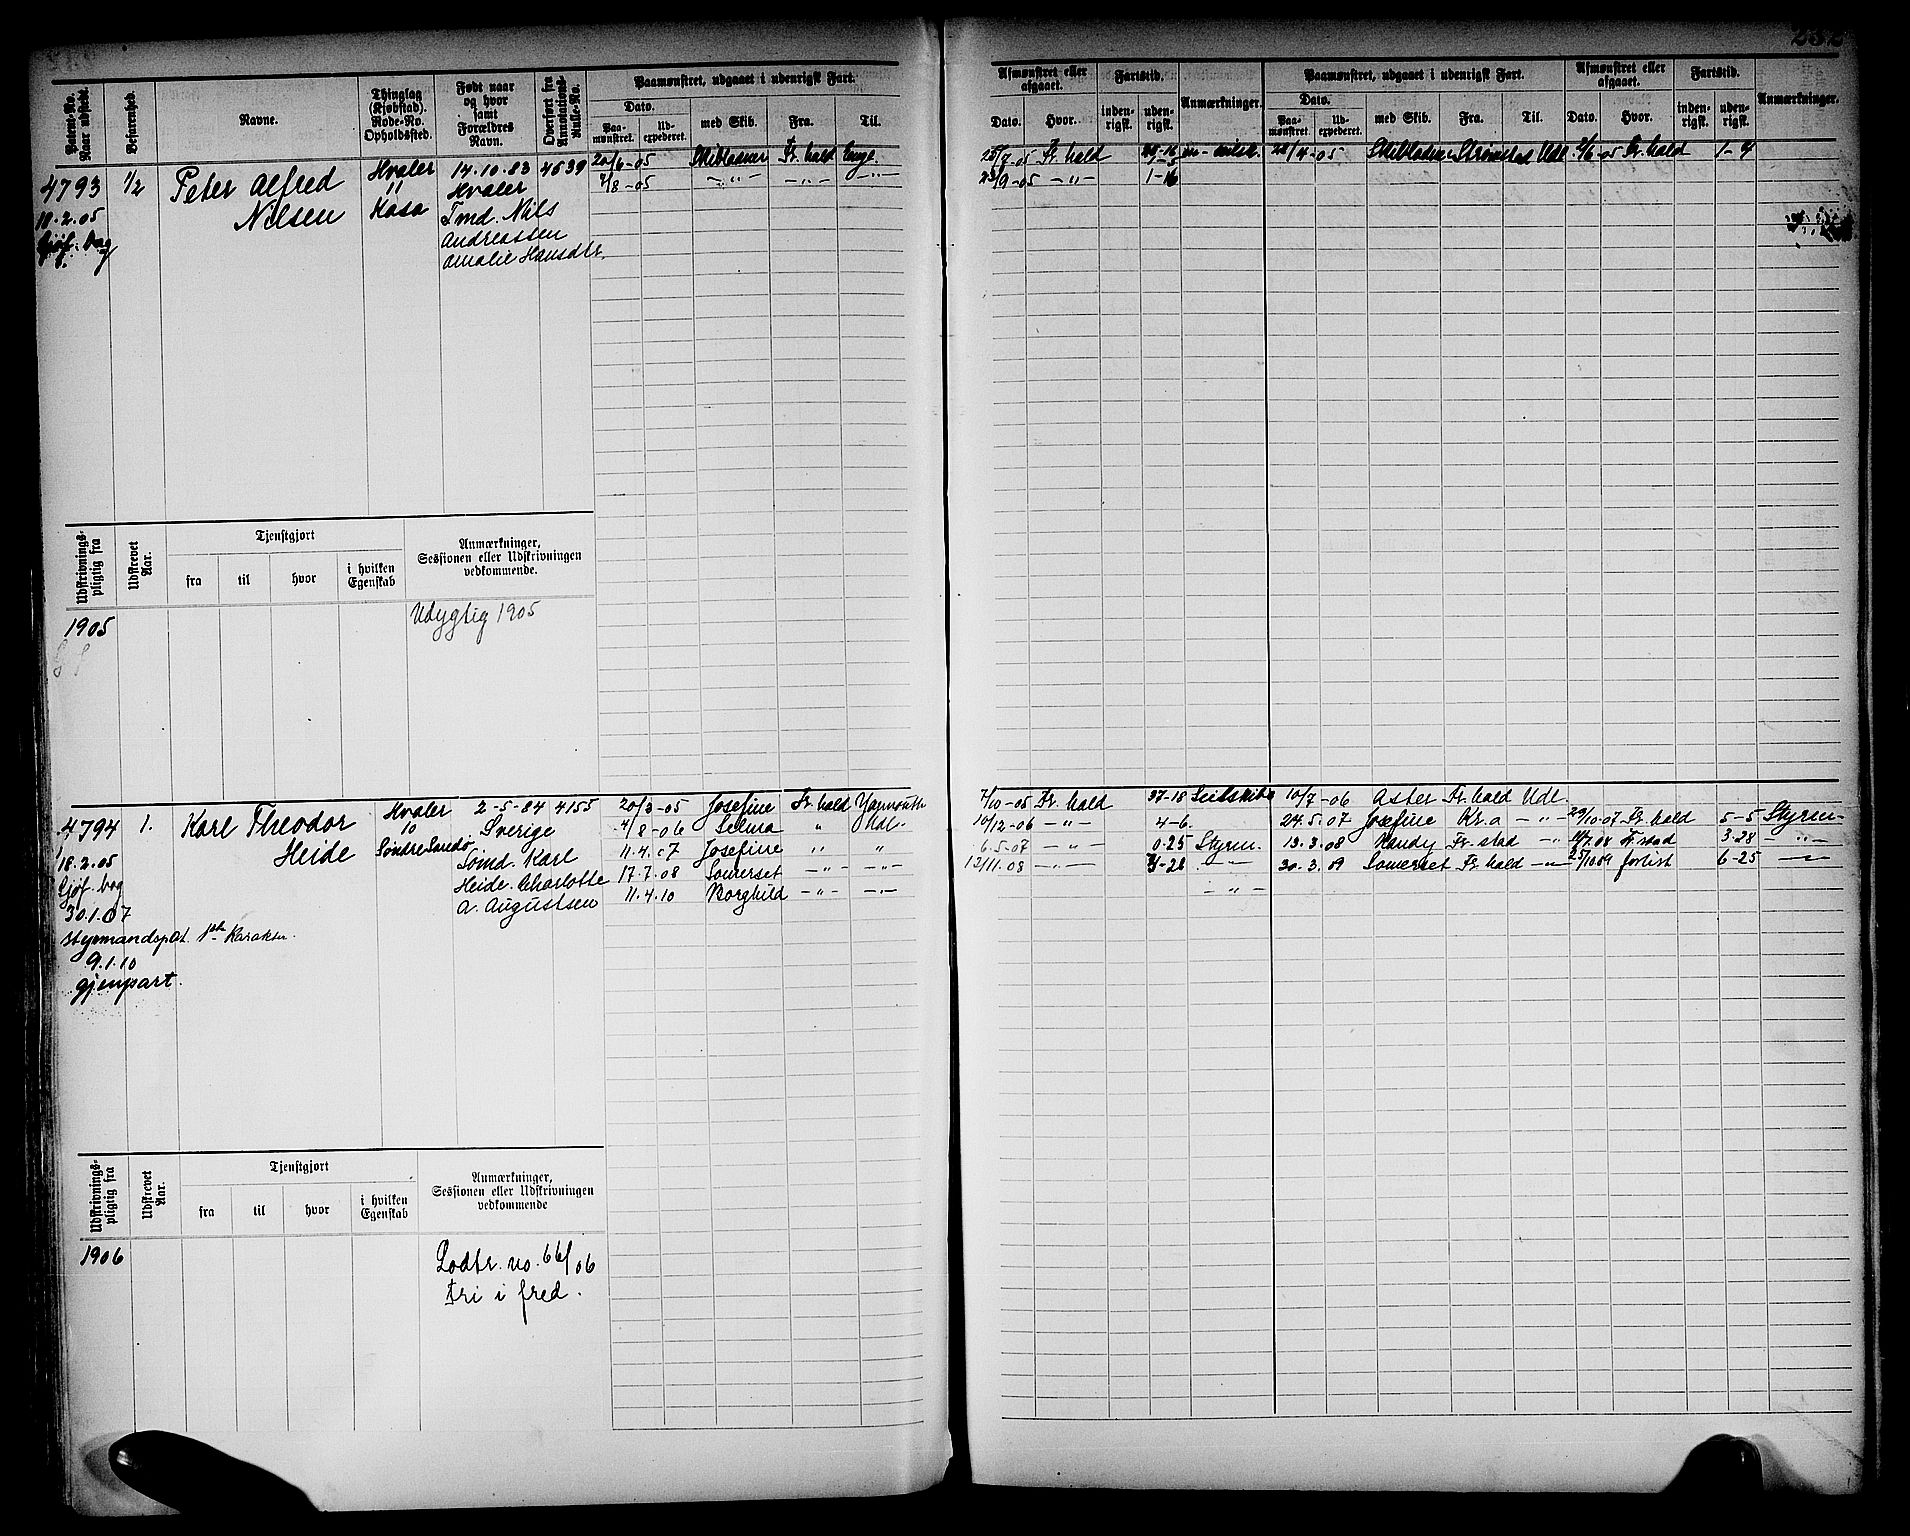 Patent-No. Naar udstedt.
Befarenhed.
Navne.
Thinglag (Kjøbstad). Rode-No. Opholdssted.
Født naar og hvor samt Forældres Navn.
Overført fra Annotations-Rulle-No.
Paamønstret, udgaaet i udenrigsk Fart.
Dato.
Paa-mønstret.
Ud-expederet.
med Skib.
Fra.
Til.
Afmønstret eller afgaaet.
Dato.
Hvor.
Fartstid.
inden-rigsk.
uden-rigsk.
Anmærkninger.
Paamønstret, udgaaet i udenrigsk Fart.
Dato.
Paa-mønstret.
Ud-expederet.
med Skib.
Fra.
Til.
Afmønstret eller afgaaet.
Dato.
Hvor.
Fartstid.
inden-rigsk.
uden-rigsk.
Anmærkninger.
232
4793
18.2.05
Sjøf. bog
1/2
Peter Alfred
Nilsen
Hvaler
11
Kasa
14.10.83 4639
Hvaler
Tmd. Nils
Andreassen
Amalie Hansdtr.
20/6-05 Skibladner Fr.hald Enge
7/8-05 -"- -"- -"-
25/7-05 Fr. hald
28/4-05 Skibladner Strømstad Udl 2/6-05 Fr. hald 1-4
25/9-05 -"- 1-16
Udskrivnings-pligtig fra
Udskrevet Aar.
Tjenstgjort
fra
til
hvor
i hvilken Egenskab
Anmærkninger, Sessionen eller Udskrivningen vedkommende.
1905
Udygtig 1905
4794
18.2.05
Sjøf. bog
30.1.07
styrmandspat. 1ste Karakter.
9.1.10
gjenpart.
1.
Karl Theodor
Heide
Hvaler
10
Søndre Sandø
2-5-84 4155
Sverige
Sømd. Karl
Heide. Charlotte
A. Augustsen
20/3-05 Josefine Fr. hald Yarmouth
7/8-06 Selma " Udl.
11.4.07 Josefine " "
17.7.08 Somerset -"- -"-
11.4.10 Borghild -"- -"-
7/10-05 Fr. hald 37-18 Seilskibe 10/7-06 Aster Fr. hald Udl.
10/12-06 -"- 4-6. 24.5.07 Josefine Kr.a -"- 29/10-07 Fr. hald 5-5 Styrm-
6.5-07 -"- 0-25 Styrm. 13.3.08 Handy Fr. stad -"- 10/7.08 Fr. stad 3-28 -"-
12/11.08 -"- 3-28 -"- 30.3.09 Somerset Fr. hald -"- 25/10 09 forlist 6-25 -"-
-"-
Udskrivnings-pligtig fra
Udskrevet Aar.
Tjenstgjort
fra
til
hvor
i hvilken Egenskab
Anmærkninger, Sessionen eller Udskrivningen vedkommende
1906
Lodtr. no. 66/06
fri i fred.